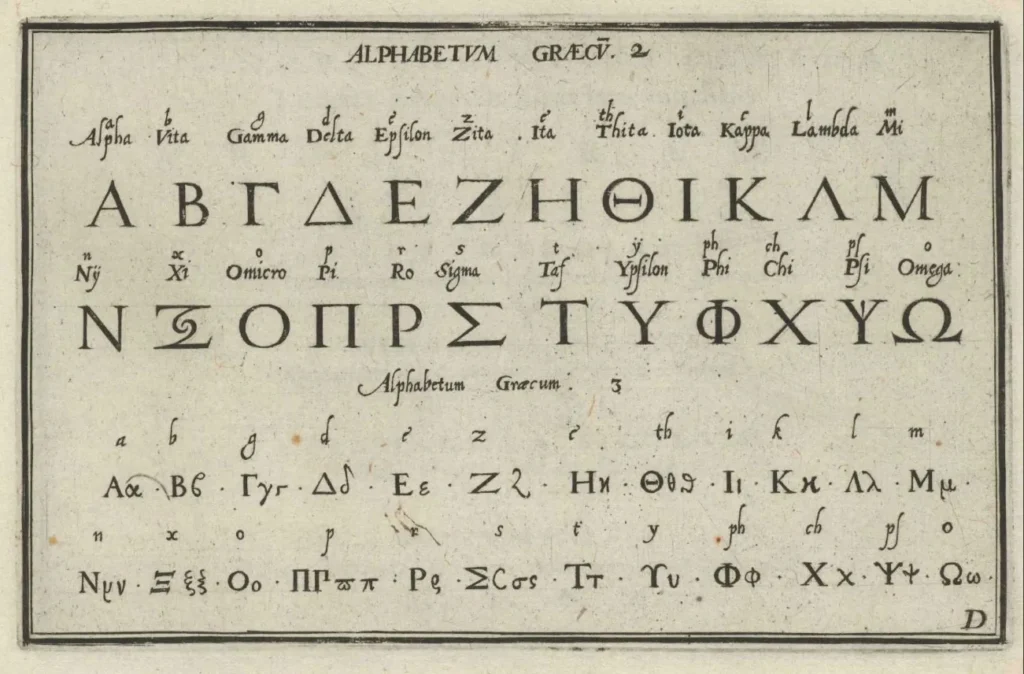 ALPHABETVM GRÆCV̄. 2
a b g d e z e th i c l m
Alpha Vita Gamma Delta Epsilon Zita . Ita Thita. Iota Kappa Lambda Mi
Α Β Γ Δ Ε Ζ Η Θ Ι Κ Λ Μ
n x o p r s t ÿ ph ch ps o
Nÿ Xi Omicro Pi Ro Sigma Taf Ypsilon Phi Chi Psi Omega.
Ν Ξ Ο Π Ρ Σ Τ Υ Φ Χ Ψ Ω
Alphabetum Græcum. 3
a b g d e z e th i k l m
Αα · Βϐ · Γγг · Δδ · Εε · Ζζ · Ηη · Θθϑ · Ιι · Κκ · Λλ · Μμ ·
n x o p r s t y ph ch ps o
Νν · Ξξξ · Οο · ΠΠϖπ · Ρρ · ΣCσς · Ττ · ϒυ · Φφ · Χχ · Ψψ · Ωω ·
D